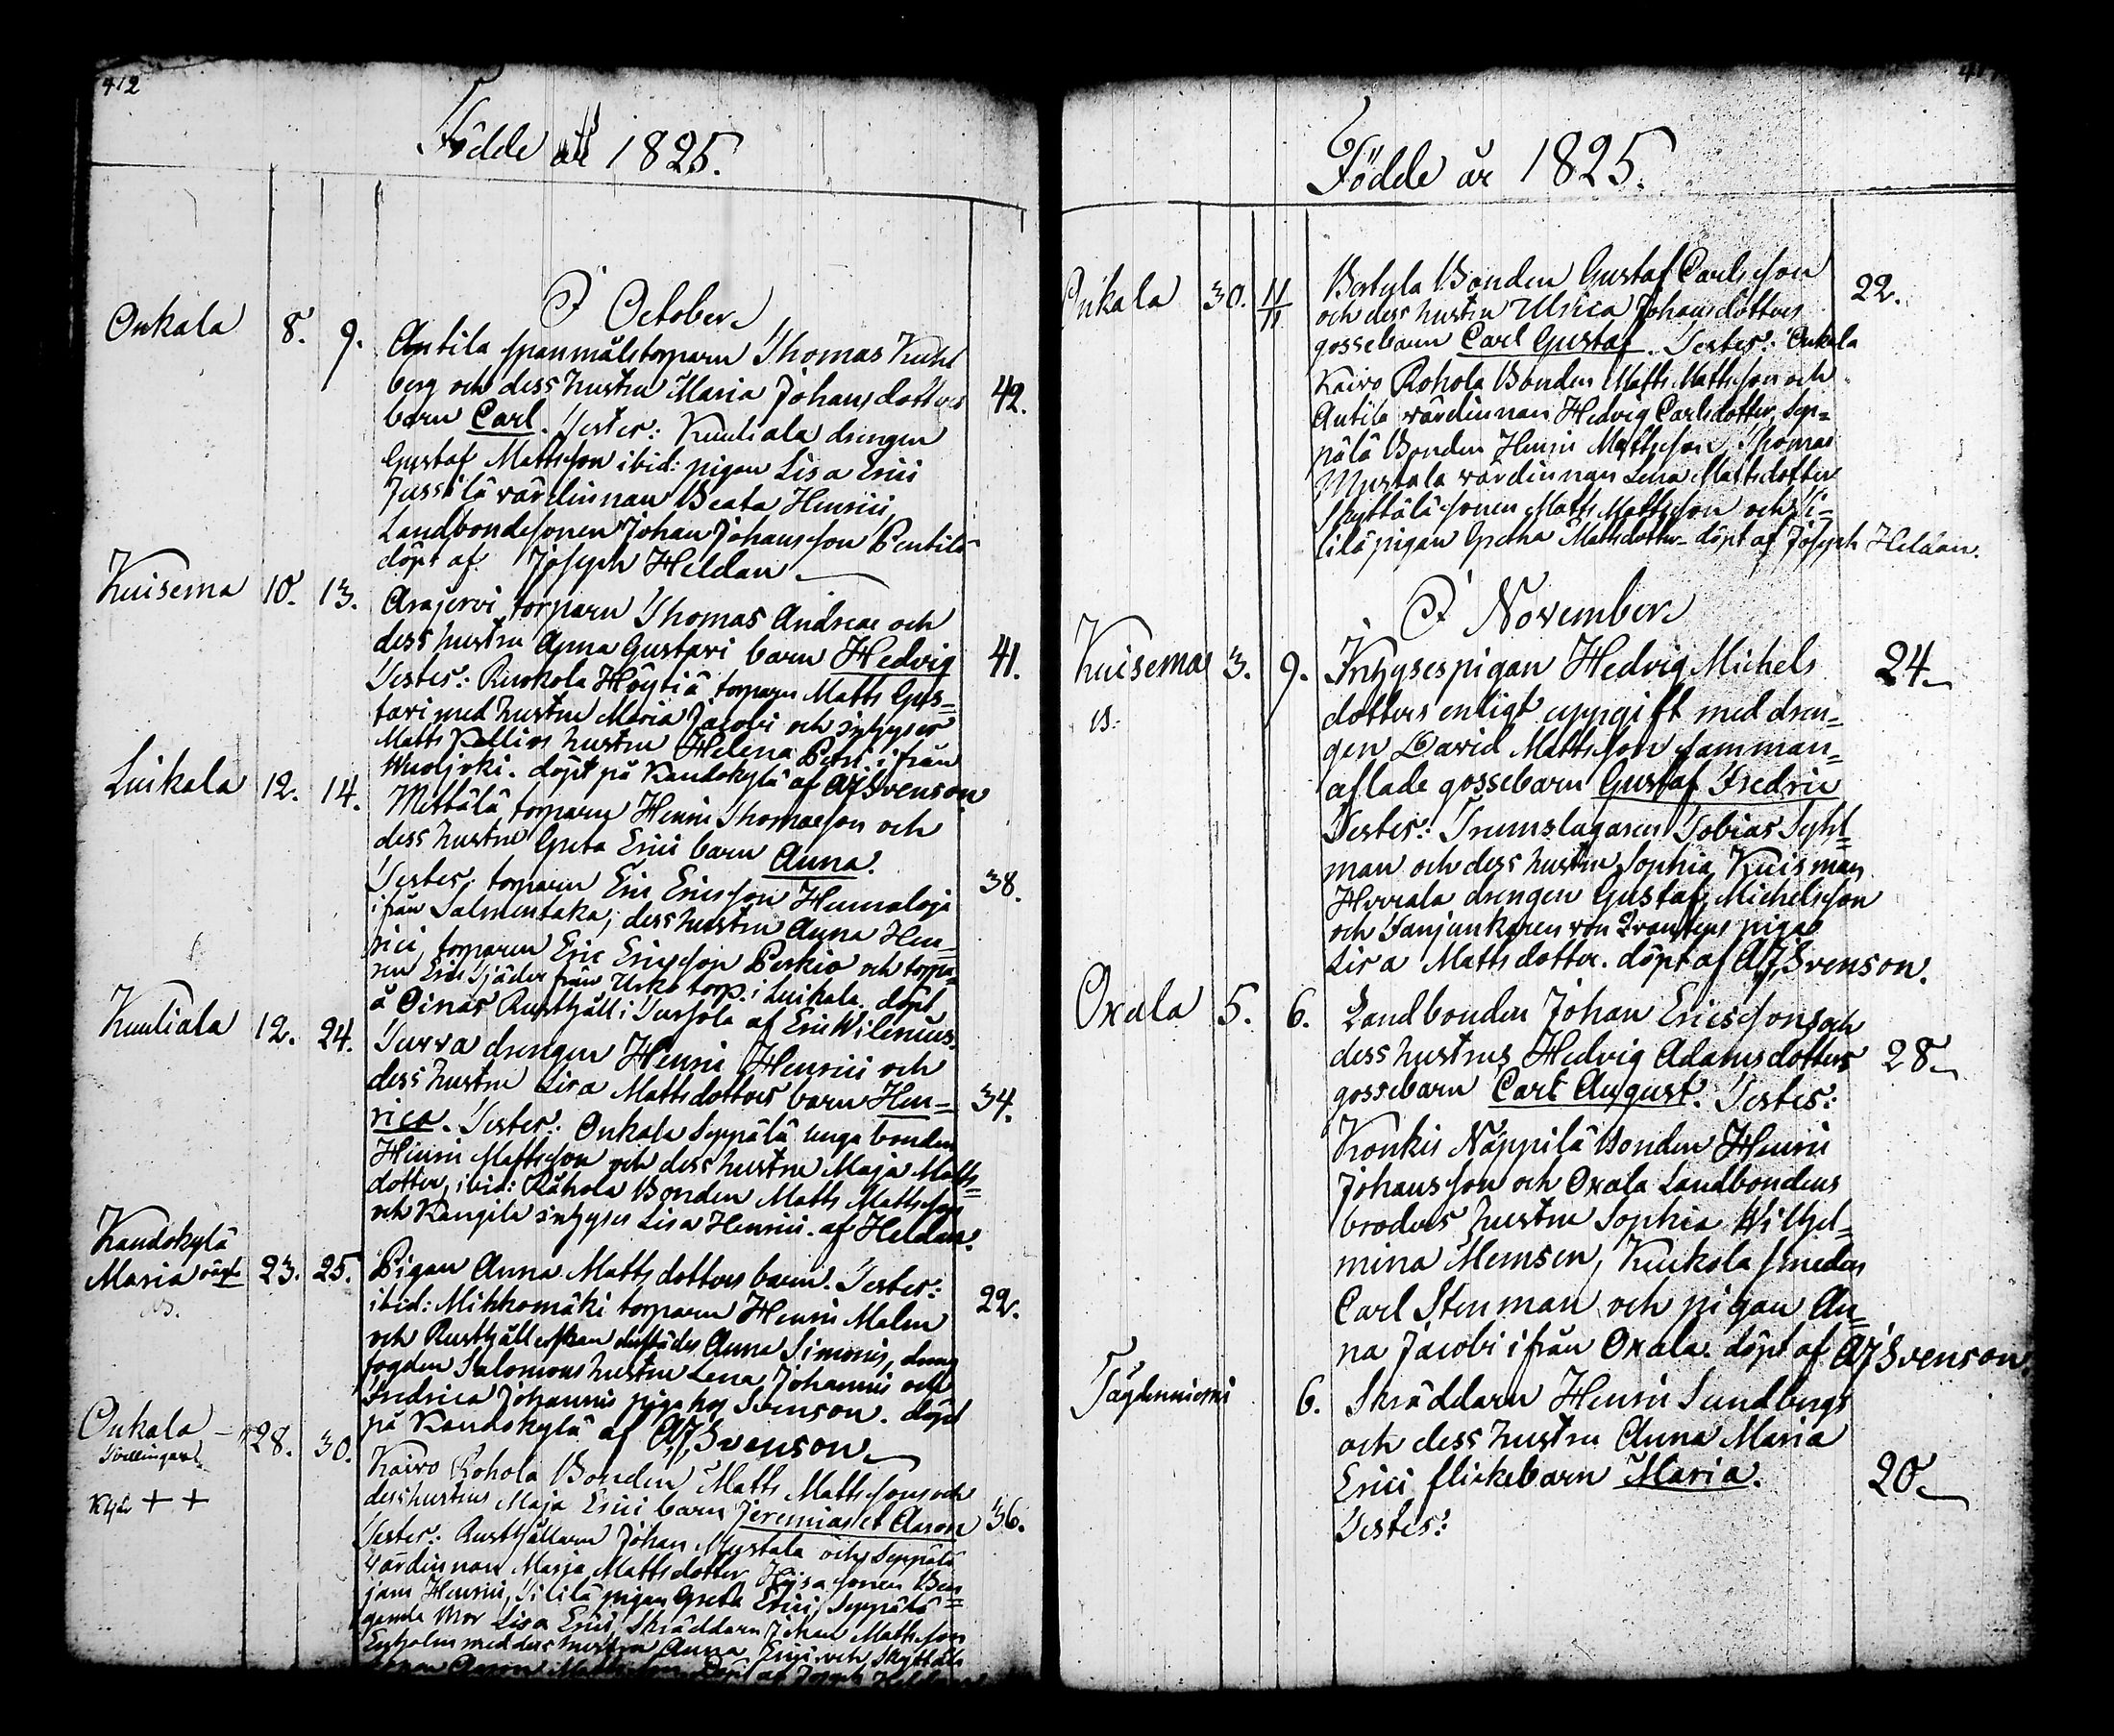 412
Födde år 1825.
I October
Onkala 8. 9. Antila spanmålstorparn Thomas Kuhl
berg och dess hustru Maria Johansdotters 42.
barn Carl. Testes: Kuuliala drengen
Gustaf Mattsson ibid: pigan Lisa Erici
Jussilä värdinnan Beata Henrici,
Landbondesonen Johan Johansson Pentilä
döpt af Joseph Heldan
Kuisema 10. 13. Arajervi torparn Thomas Andreae och
dess hustru Anna Gustavi barn Hedvig 41.
Testes: Ruokola Höytiä torparn Matts Gus=
tavi med hustru Maria Jacobi och inhyses
Matts hustru Helena Petri ifrån
Wuoljoki. döpt på Kandokylä af AJSvenson
Luikala 12. 14. Mettälä torparn Henric Thomasson och
dess hustru Greta Erici barn Anna.
Testes: torparn Eric Ericsson Humaloja 38.
ifrån Salmentaka, dess hustru Anna Hen=
rici, torparen Eric Ericsson Perkiö och torpa=
ren Eric från torp. i Luikala. döpt
å Oinas Rusthåll i Tursola af Eric Wilenius.
Kuuliala 12. 24. Turra drengen Henric Henrici och
dess hustru Lisa Mattsdotters barn Hen= 34.
rica. Testes: Onkala Seppälä unga bonden
Henric Mattsson och dess hustru Maja Matts=
dotter, ibid: Råhola Bonden Matts Mattsson
och Kangila inhyses Lisa Henrici. af Heldan.
Kandokylä
Maria oägta 23. 25. Pigan Anna Matts dotters barn. Testes:
ibid: Mikkomäki torparn Henric Malm 22.
och Anna Simonis, dreng
fogden Salomons hustru Lena Johannis och
Fredrica Johannis piga hos Svenson. döpt
på Kandokylä af AJSvenson
Onkala 28. 30. Kaivo Rohola Bonden Matts Mattsons och
Tvillingar dess hustrus Maja Erici barn Jeremias et Aaron 36.
+ + Testes: Rusthållarn Johan Mustala och Seppälä
värdinnan Marja Mattsdotter, sonen Ben=
jam Henrici, Tililä pigan Greta Erici, Seppälä
gamla Mor Lisa Erici, Skräddarn Johan Mattsson
med dess hustru Anna Erici och Skyttälä
Födde år 1825.
Onkala 30. 11/11 Bertula Bonden Gustaf Carlsson 22.
och dess hustru Ulrica Johansdotters
gossebarn Carl Gustaf. Testes: Onkala
Kaivo Rohola Bonden Matts Mattsson och
Antila värdinnan Hedvig Carlsdotter, Sep=
pälä Bonden Henric Mattsson, Thomas
Mustala värdinnan Lena Mattsdotter
Skyttälä sonen Matts Mattsson och Ti=
lilä pigan Gretha Mattsdotter döpt af Joseph Heldan.
I November
Kuisema 3. 9. Inhysespigan Hedvig Michels 24.
dotters enligt uppgift med dren=
gen David Mattsson samman=
aflade gossebarn Gustaf Fredric
Testes: Trumslagaren Tobias
man och dess hustru Sophia Kuisman
Hervala drengen Gustaf Michelsson
och Fanjunkaren von Qvantens piga
Lisa Matts dotter. döpt af AJSvenson.
Oxala 5. 6. Landbonden Johan Ericssons och
dess hustrus Hedvig Adamsdotters 28.
gossebarn Carl August. Testes:
Konkis Näppilä Bonden Henric
Johansson och Oxala Landbondens
broders hustru Sophia Wilhel=
mina Memsen, Kuckola smeden
Carl Stenman och pigan An=
na Jacobi ifrån Oxala. döpt af AJSvenson.
6. Skräddarn Henric Sundbergs
och dess hustru Anna Maria
Erici flickebarn Maria. 20.
Testes: